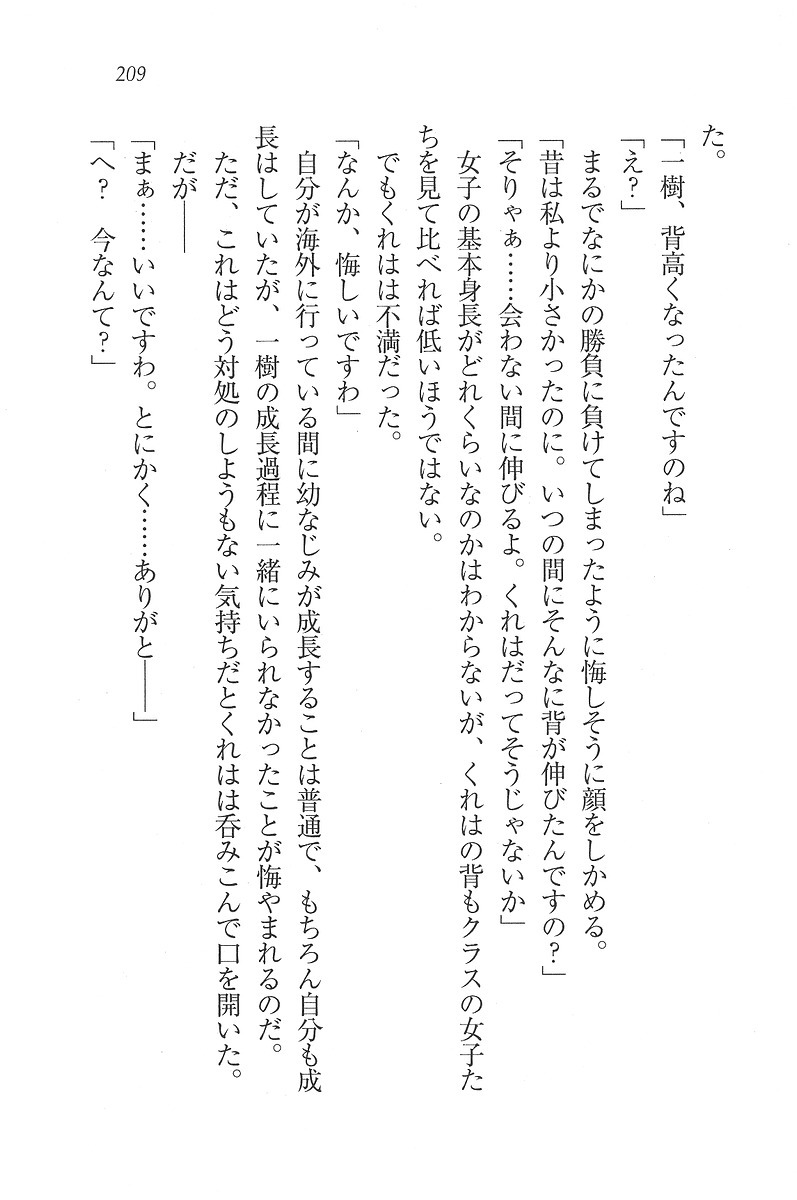 209
た。
「一樹、背高くなったんですのね」
「え？」
まるでなにかの勝負に負けてしまったように悔しそうに顔をしかめる。
「昔は私より小さかったのに。いつの間にそんなに背が伸びたんですの？」
「そりゃぁ……会わない間に伸びるよ。くれはだってそうじゃないか」
女子の基本身長がどれくらいなのかはわからないが、くれはの背もクラスの女子た
ちを見て比べれば低いほうではない。
でもくれはは不満だった。
「なんか、悔しいですわ」
自分が海外に行っている間に幼なじみが成長することは普通で、もちろん自分も成
長はしていたが、一樹の成長過程に一緒にいられなかったことが悔やまれるのだ。
ただ、これはどう対処のしようもない気持ちだとくれはは呑みこんで口を開いた。
だが――
「まぁ……いいですわ。とにかく……ありがと――」
「へ？　今なんて？」